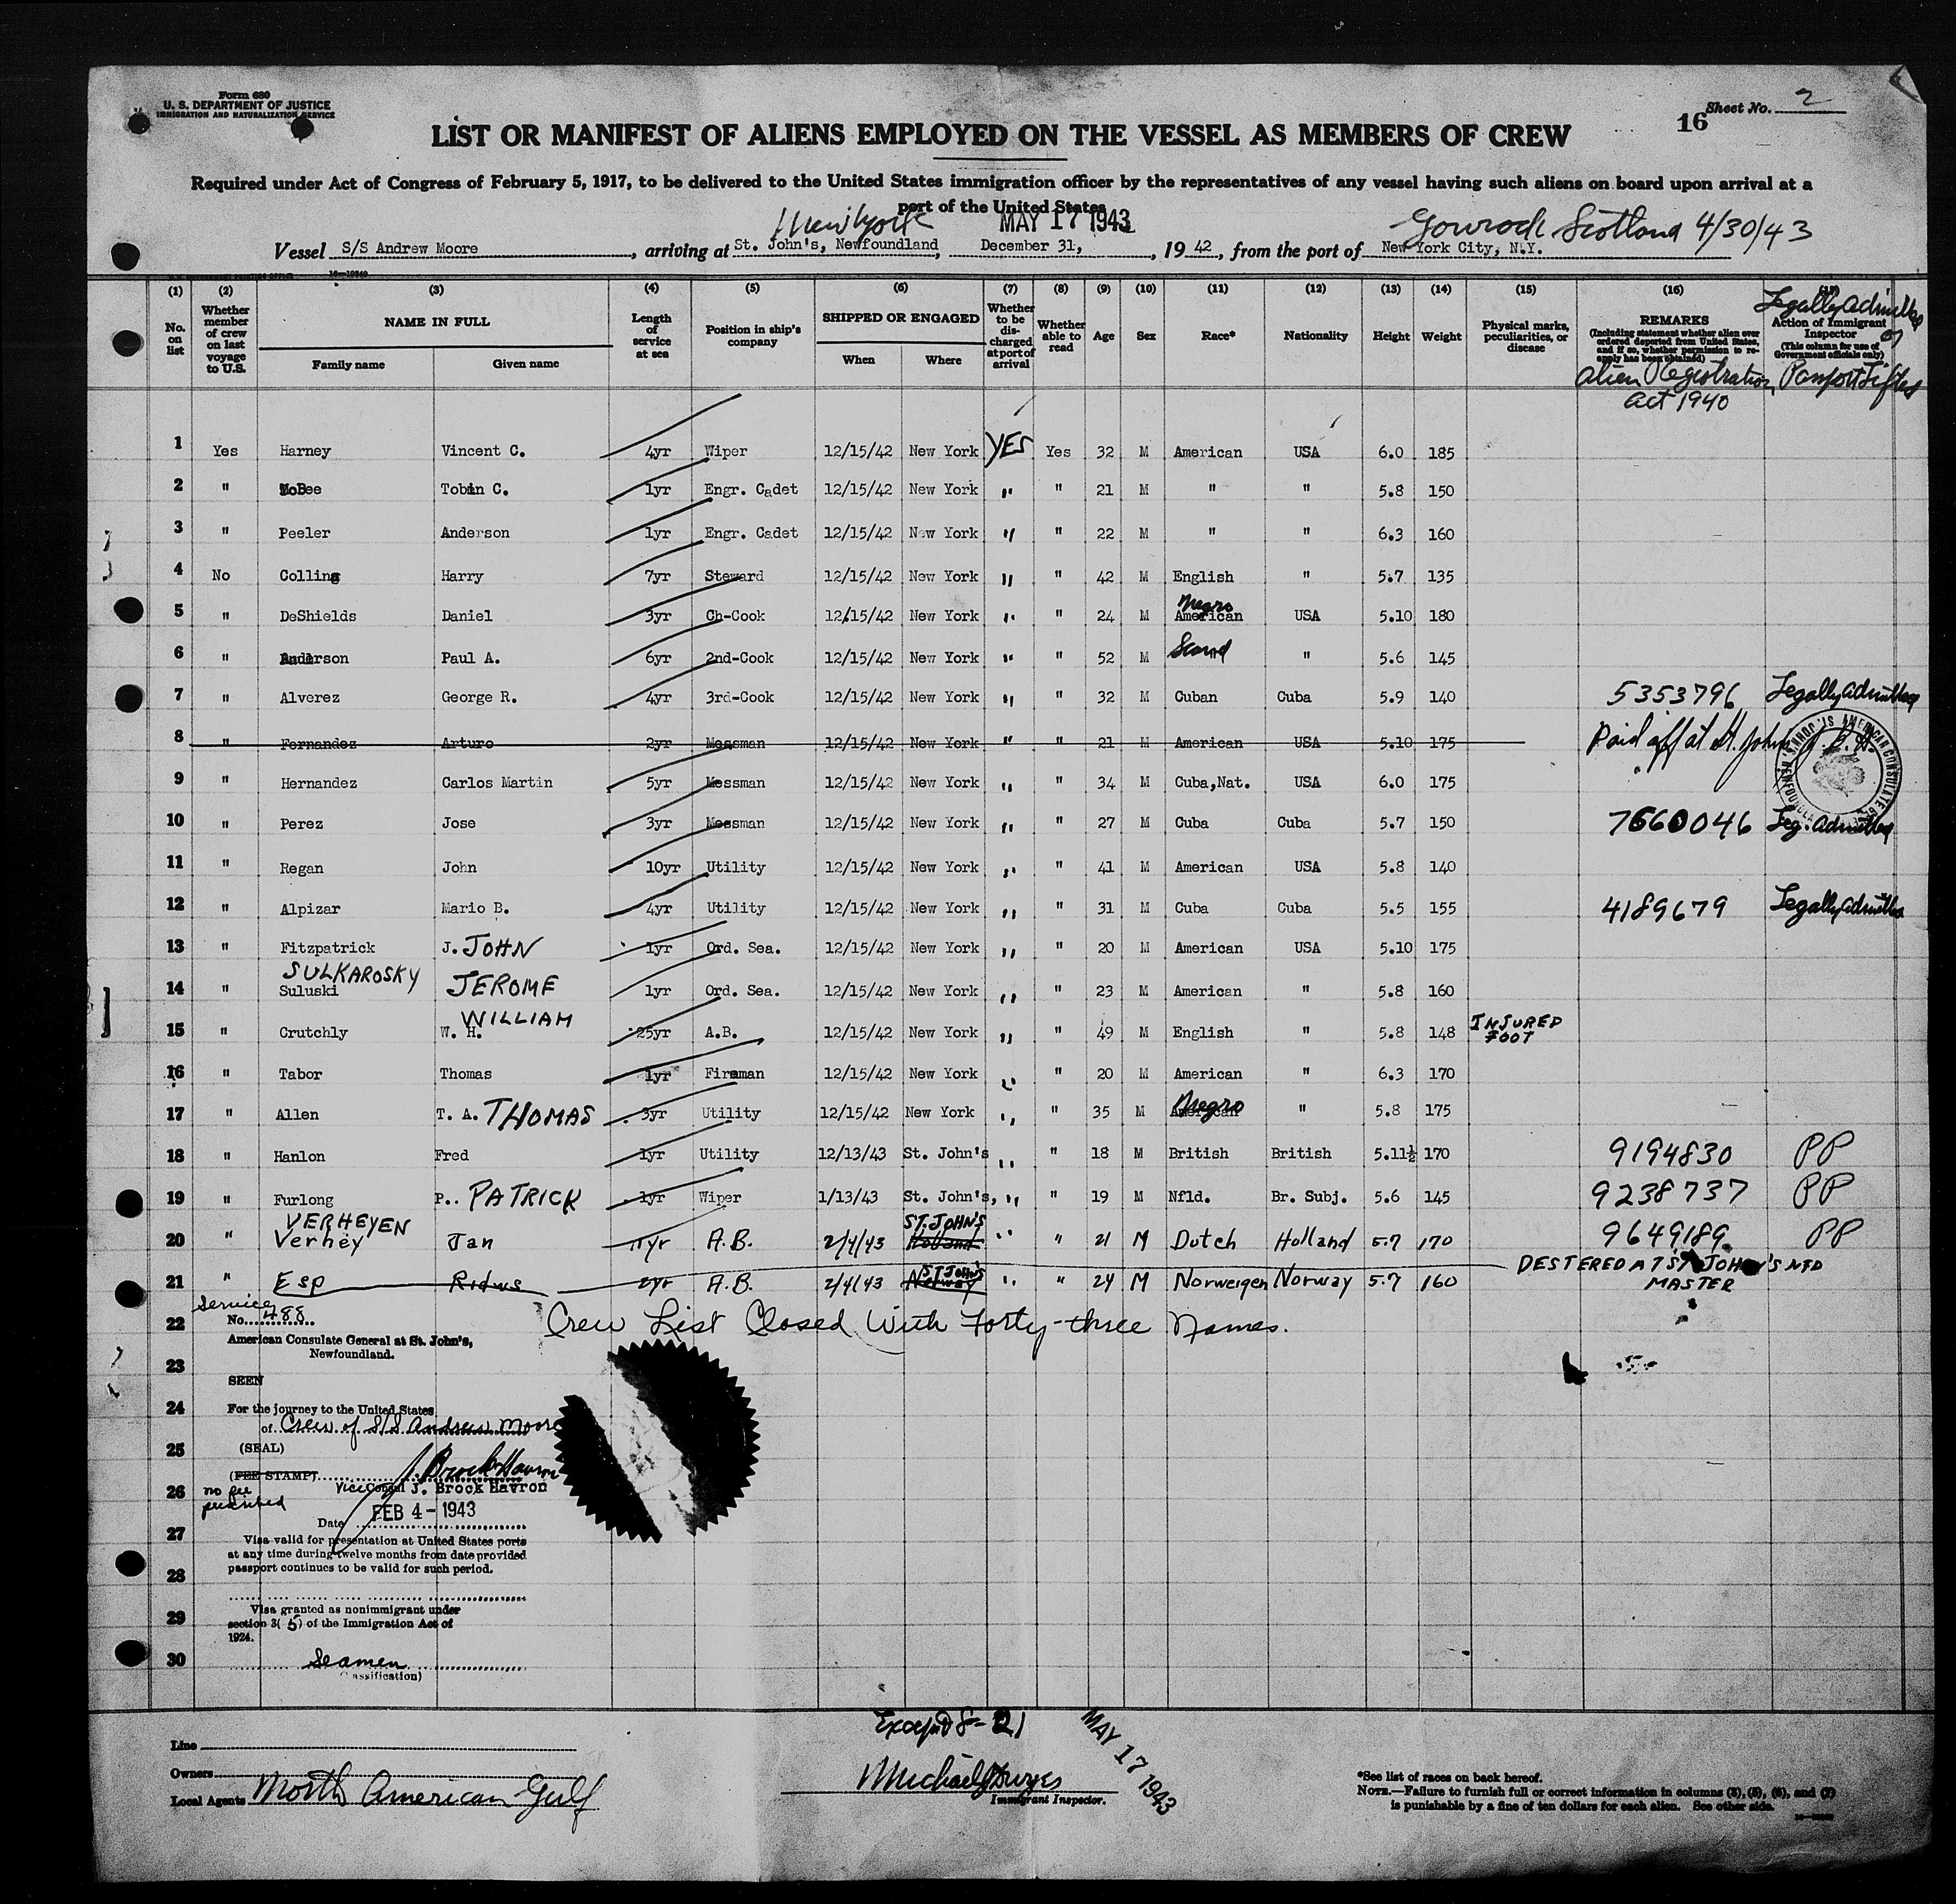 Form 680
U. S. DEPARTMENT OF JUSTICE
IMMIGRATION AND NATURALIZATION SERVICE
Sheet No. 2
16
LIST OR MANIFEST OF ALIENS EMPLOYED ON THE VESSEL AS MEMBERS OF CREW
Required under Act of Congress of February 5, 1917, to be delivered to the United States immigration officer by the representatives of any vessel having such aliens on board upon arrival at a
port of the United States
New York MAY 17 1943 Gourock Scotland 4/30/43
Vessel S/S Andrew Moore, arriving at St. John's, Newfoundland, December 31, , 19 42, from the port of New York City, N.Y.
(1) (2) (3) (4) (5) (6) (7) (8) (9) (10) (11) (12) (13) (14) (15) (16)
No. on list
Whether member of crew on last voyage to U.S.
NAME IN FULL
Family name Given name
Length of service at sea
Position in ship's company
SHIPPED OR ENGAGED
When Where
Whether to be discharged at port of arrival
Whether able to read
Age Sex Race* Nationality Height Weight
Physical marks, peculiarities, or disease
REMARKS
(Including statement whether alien ever ordered deported from United States, and if so, whether permission to reapply has been obtained)
Alien Registration Act 1940
Legally Admitted or
Action of Immigrant Inspector
(This column for use of Government officials only)
1 Yes Harney Vincent C. 4yr Wiper 12/15/42 New York YES Yes 32 M American USA 6.0 185
2 " McBee Tobin C. 1yr Engr. Cadet 12/15/42 New York " " 21 M " " 5.8 150
3 " Peeler Anderson 1yr Engr. Cadet 12/15/42 New York " " 22 M " " 6.3 160
4 No Colling Harry 7yr Steward 12/15/42 New York " " 42 M English " 5.7 135
5 " DeShields Daniel 3yr Ch-Cook 12/15/42 New York " " 24 M American Negro USA 5.10 180
6 " Anderson Paul A. 6yr 2nd-Cook 12/15/42 New York " " 52 M Scand " 5.6 145
7 " Alverez George R. 4yr 3rd-Cook 12/15/42 New York " " 32 M Cuban Cuba 5.9 140 5353796 Legally Admitted
8 " Fernandez Arturo 2yr Messman 12/15/42 New York " " 21 M American USA 5.10 175 Paid off at St. John's
9 " Hernandez Carlos Martin 5yr Messman 12/15/42 New York " " 34 M Cuba,Nat. USA 6.0 175
10 " Perez Jose 3yr Messman 12/15/42 New York " " 27 M Cuba Cuba 5.7 150 7660046 Leg. Admitted
11 " Regan John 10yr Utility 12/15/42 New York " " 41 M American USA 5.8 140
12 " Alpizar Mario B. 4yr Utility 12/15/42 New York " " 31 M Cuba Cuba 5.5 155 4189679 Legally Admitted
13 " Fitzpatrick J. JOHN 1yr Ord. Sea. 12/15/42 New York " " 20 M American USA 5.10 175
SULKAROSKY
14 " Suluski JEROME 1yr Ord. Sea. 12/15/42 New York " " 23 M American " 5.8 160
WILLIAM
15 " Crutchly W. H. 25yr A.B. 12/15/42 New York " " 49 M English " 5.8 148 INJURED FOOT
16 " Tabor Thomas 1yr Fireman 12/15/42 New York " " 20 M American " 6.3 170
17 " Allen T. A. THOMAS 3yr Utility 12/15/42 New York " " 35 M American Negro " 5.8 175
18 " Hanlon Fred 1yr Utility 12/13/43 St. John's " " 18 M British British 5.11½ 170 9194830 PP
19 " Furlong P.. PATRICK 1yr Wiper 1/13/43 St. John's, " " 19 M Nfld. Br. Subj. 5.6 145 9238737 PP
VERHEYEN ST. JOHN'S
20 " Verhey Jan 1yr A.B. 2/4/43 Holland " " 21 M Dutch Holland 5.7 170 9649189 PP
ST JOHN'S
21 " Esp Ridus 2yr A.B. 2/4/43 Norway " " 24 M Norweigen Norway 5.7 160 DESTERED AT ST JOHN'S NFD
MASTER
22 Crew List Closed With Forty-three Names.
Service
No. 488
American Consulate General at St. John's,
Newfoundland.
23
SEEN
24 For the journey to the United States
of Crew of S/S Andrew Moore
25 (SEAL)
(FEE STAMP) J. Brock Havron
26 no fee prescribed Vice Consul J. Brock Havron
Date FEB 4 - 1943
27 Visa valid for presentation at United States ports
at any time during twelve months from date provided
passport continues to be valid for such period.
28
29 Visa granted as nonimmigrant under
section 3(5) of the Immigration Act of
1924.
30 Seamen
(Classification)
Except 8-21
MAY 17 1943
Line
Owners
Local Agents North American Gulf
Michael Dwyer
Immigrant Inspector.
*See list of races on back hereof.
NOTE.—Failure to furnish full or correct information in columns (3), (5), (6), and (7)
is punishable by a fine of ten dollars for each alien. See other side.